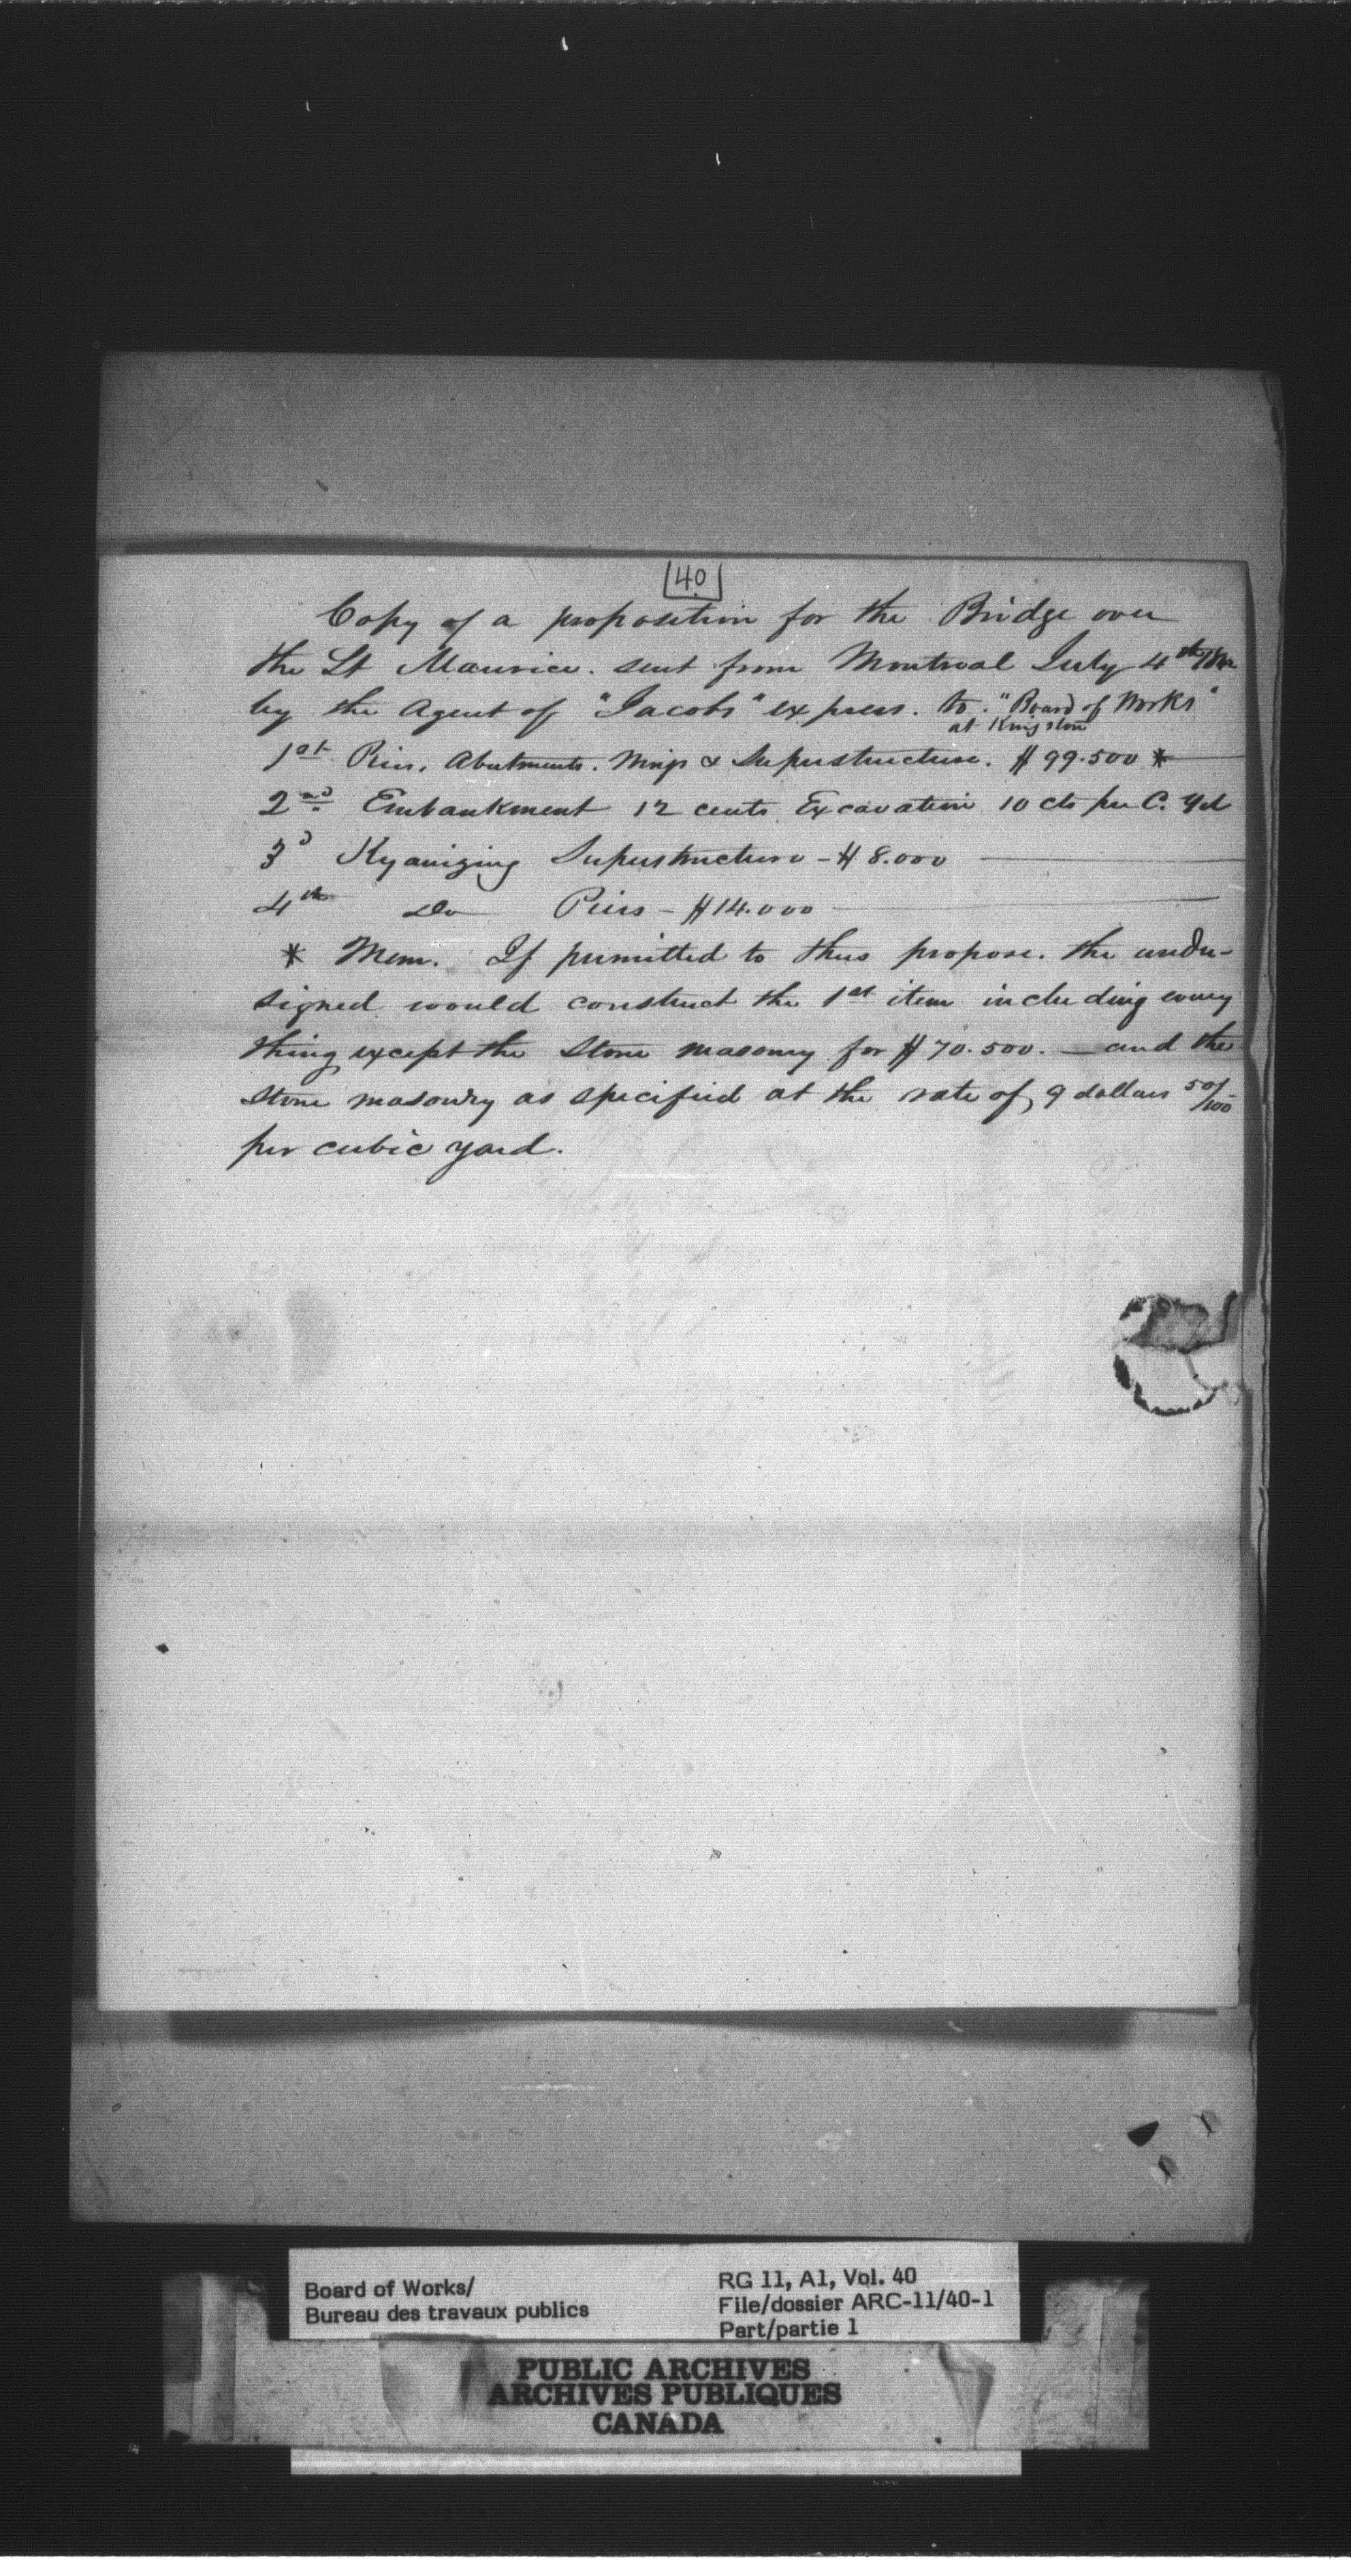 40
Copy of a proposition for the Bridge over
the St Maurice. sent from Montreal July 4th
by the Agent of "Jacobs" express. to. "Board of Works"
at Kingston
1st Piers, Abutments. Wings & Superstructure. $99.500 *
2nd Embankment 12 cents Excavation 10 cts per C. Yd
3d Kyanizing Superstructure - $8.000
4th Do Piers - $14.000
* Mem. If permitted to thus propose. the under-
signed would construct the 1st item including every
thing except the stone masonry for $70.500. — and the
stone masonry as specified at the rate of 9 dollars 50/100
per cubic yard.
Board of Works/
Bureau des travaux publics
RG 11, A1, Vol. 40
File/dossier ARC-11/40-1
Part/partie 1
PUBLIC ARCHIVES
ARCHIVES PUBLIQUES
CANADA